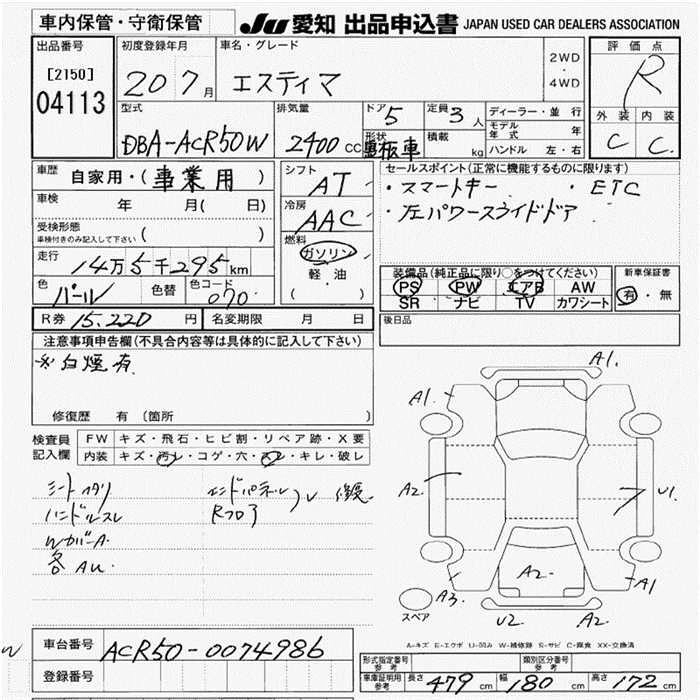 車内保管・守衛保管
JU 愛知 出品申込書 JAPAN USED CAR DEALERS ASSOCIATION
出品番号
[2150]
04113
初度登録年月
20 7月
車名・グレード
エスティマ
2WD
・
4WD
評価点
R
外装 内装
C C
型式
DBA-ACR50W
排気量
2400 CC
ドア 5
形状
定員 3 人
積載 kg
ディーラー・並行
モデル年式 年
ハンドル 左・右
車歴
自家用・(事業用)
車検 年 月( 日)
受検形態
車検付きのみ記入して下さい ( )
走行
14万5千295km
色 パール 色替 色コード 070
シフト
AT
冷房
AAC
燃料
ガソリン
軽・油
( )
セールスポイント(正常に機能するものに限ります)
・スマートキー ・ETC
・左パワースライドドア
装備品(純正品に限り○をつけてください)
PS PW エアB AW
SR ナビ TV カワシート
新車保証書
有・無
R券 15.220 円 名変期限 月 日
後日品
注意事項申告欄(不具合内容等は具体的に記入して下さい)
※白煙有
修復歴 有 (箇所 )
検査員記入欄
FW キズ・飛石・ヒビ割・リペア跡・X要
内装 キズ・汚レ・コゲ・穴・スレ・キレ・破レ
シートヘタリ
ハンドルスレ
WカバーA
各AU
エンドパネル
Rフロア
修復
A1.
A1.
A2.
U1.
A2-
A3.
A1
U2
A2.
スペア
A-キズ E-エクボ U-凹み W-補修跡 S-サビ C-腐食 XX-交換済
車台番号 ACR50-0074986
登録番号
形式指定番号 参考
類別区分番号 参考
車庫証明用 参考 長さ 479 cm 幅 180 cm 高さ 172 cm